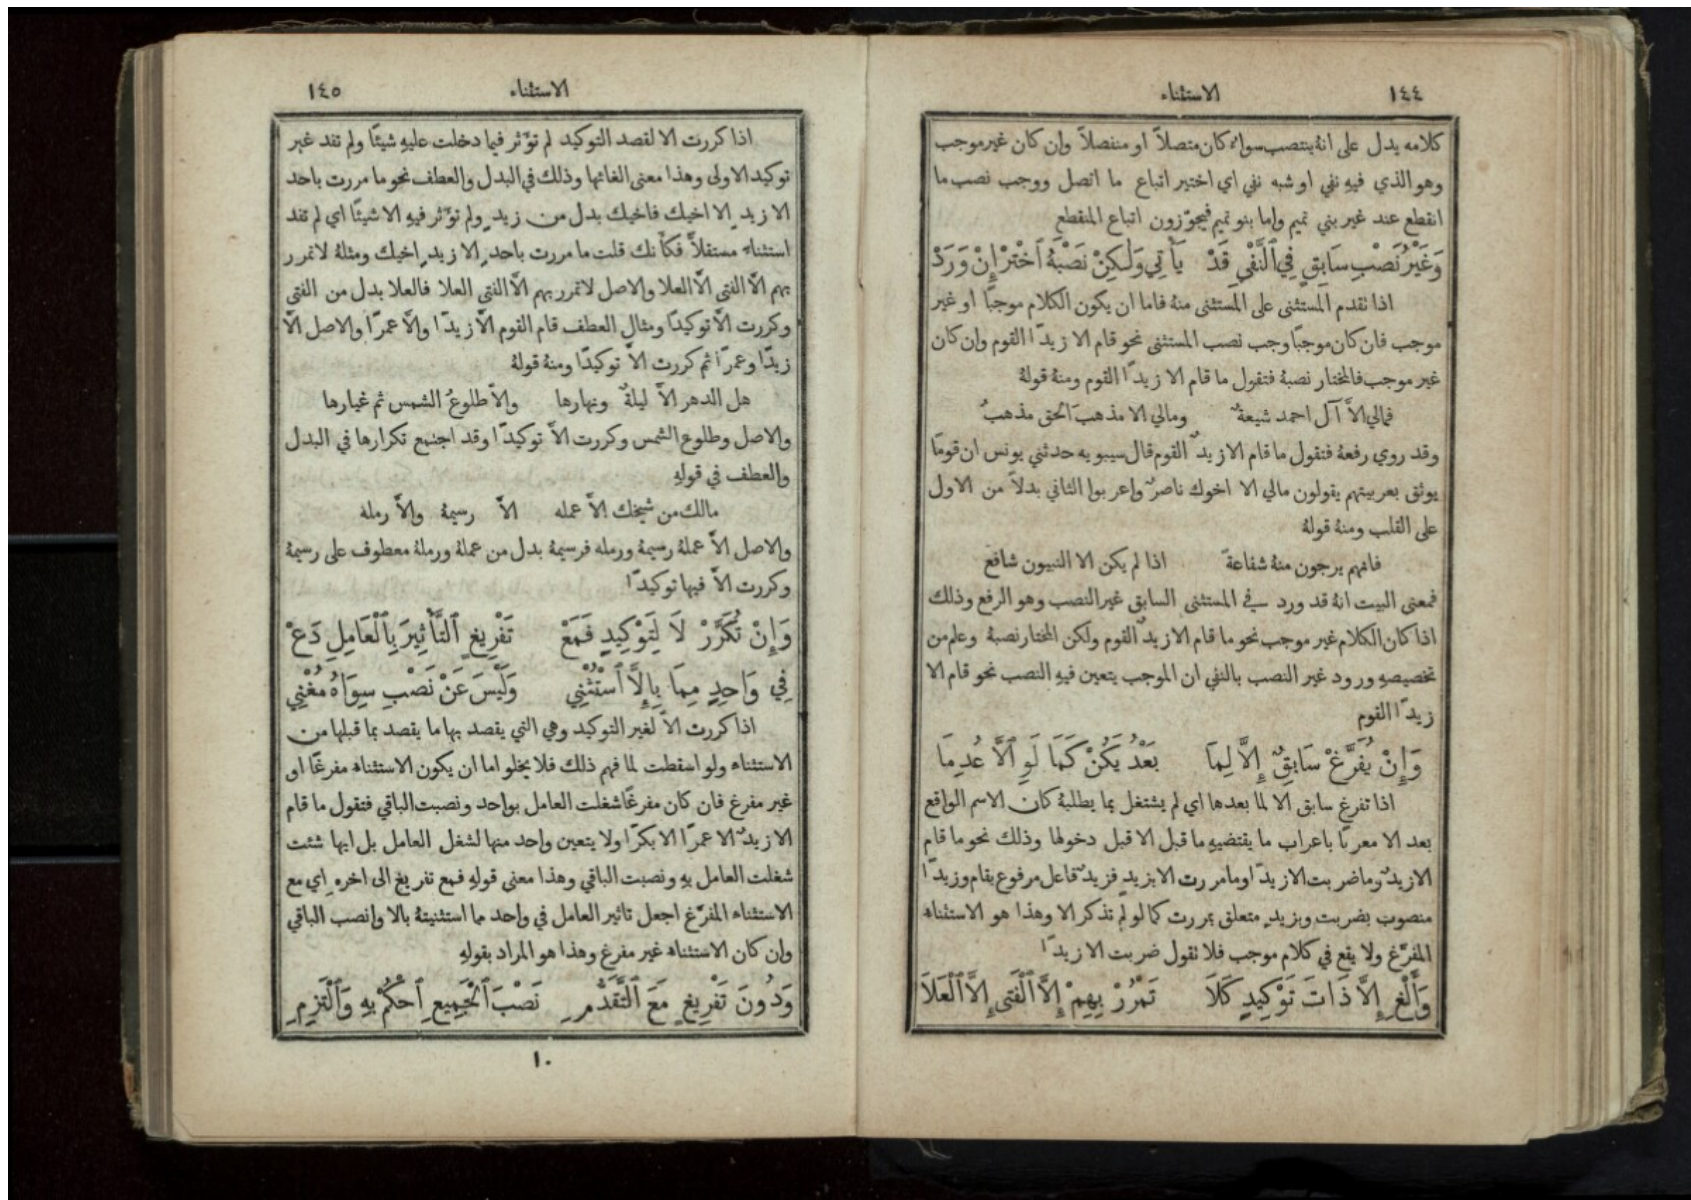 ١٤٤
الاستثناء
كلامه يدل على انهُ ينتصب سوالا كان متصلاً او منفصلاً وإن كان غير موجب
وهو الذي فيهِ نفي او شبه نفي اي اختير اتباع ما اتصل ووجب نصب ما
انقطع عند غير بني تميم وإما بنو تميم فيجوّزون اتباع المنقطع
وَغَيْرُ نَصْبِ سَابِقٍ فِي ٱلنَّفْيِ قَدْ يَأْتِي وَلٰكِنْ نَصْبَهُ ٱخْتَرْ إِنْ وَرَدْ
اذا تقدم المستثنى على المستثنى منهُ فاما ان يكون الكلام موجبًا او غير
موجب فان كان موجبًا وجب نصب المستثنى نحو قام الا زيدًا القوم وإن كان
غير موجب فالمختار نصبهُ فتقول ما قام الا زيدًا القوم ومنهُ قولهُ
فمالي الاَّ آل احمد شيعةٌ ومالي الا مذهبَ الحق مذهبُ
وقد روي رفعهُ فتقول ما قام الا زيدٌ القوم قال سيبويه حدثني يونس ان قومًا
يوثق بعربيتهم يقولون مالي الا اخوك ناصرٌ واعربوا الثاني بدلاً من الاول
على القلب ومنهُ قولهُ
فانهم يرجون منهُ شفاعةً اذا لم يكن الا النبيون شافع
فمعنى البيت انهُ قد ورد في المستثنى السابق غير النصب وهو الرفع وذلك
اذا كان الكلام غير موجب نحو ما قام الا زيدٌ القوم ولكن المختار نصبهُ وعلم من
تخصيصهِ ورود غير النصب بالنفي ان الموجب يتعين فيهِ النصب نحو قام الا
زيدًا القوم
وَإِنْ يُفَرَّغْ سَابِقٌ إِلَّا لِمَا بَعْدُ يَكُنْ كَمَا لَوِ ٱلَّا عُدِمَا
اذا تفرغ سابق الا لما بعدها اي لم يشتغل بما يطلبهُ كان الاسم الواقع
بعد الا معربًا باعراب ما يقتضيهِ ما قبل الا قبل دخولها وذلك نحو ما قام
الا زيدٌ وما ضربت الا زيدًا وما مررت الا بزيدٍ فزيدٌ فاعل مرفوع بقام وزيدًا
منصوب بضربت وبزيدٍ متعلق بمررت كما لو لم تذكر الا وهذا هو الاستثناء
المفرّغ ولا يقع في كلام موجب فلا تقول ضربت الا زيدًا
وَأَلْغِ إِلَّا ذَاتَ تَوْكِيدٍ كَلَا تَمْرُرْ بِهِمْ إِلَّا ٱلْفَتَى إِلَّا ٱلْعَلَا
الاستثناء
١٤٥
اذا كررت الا لقصد التوكيد لم تؤثر فيما دخلت عليهِ شيئًا ولم تفد غير
توكيد الاولى وهذا معنى الغائها وذلك في البدل والعطف نحو ما مررت باحد
الا زيدٍ الا اخيك فاخيك بدل من زيدٍ ولم تؤثر فيهِ الا شيئًا اي لم تفد
استثناء مستقلاًّ فكأنك قلت ما مررت باحدٍ الا زيدٍ اخيك ومثلهُ لا تمرر
بهم الاَّ الفتى الاَّ العلا والاصل لا تمرر بهم الاَّ الفتى العلا فالعلا بدل من الفتى
وكررت الاَّ توكيدًا ومثال العطف قام القوم الاَّ زيدًا والاَّ عمرًا والاصل الاَّ
زيدًا وعمرًا ثم كررت الاَّ توكيدًا ومنهُ قولهُ
هل الدهر الاَّ ليلةٌ ونهارها والاَّ طلوعُ الشمس ثم غيارها
والاصل وطلوع الشمس وكررت الاَّ توكيدًا وقد اجتمع تكرارها في البدل
والعطف في قولهِ
مالك من شيخك الاَّ عمله الاَّ رسيمهُ والاَّ رمله
والاصل الاَّ عملهُ رسيمهُ ورمله فرسيمهُ بدل من عملهُ ورملهُ معطوف على رسيمهُ
وكررت الاَّ فيها توكيدًا
وَإِنْ تُكَرَّرْ لَا لِتَوْكِيدٍ فَمَعْ تَفْرِيغٍ ٱلتَّأْثِيرَ بِٱلْعَامِلِ دَعْ
فِي وَاحِدٍ مِمَّا بِإِلَّا ٱسْتُثْنِي وَلَيْسَ عَنْ نَصْبِ سِوَاهُ مُغْنِي
اذا كررت الاَّ لغير التوكيد وهي التي يقصد بها ما يقصد بما قبلها من
الاستثناء ولو اسقطت لما فهم ذلك فلا يخلو اما ان يكون الاستثناء مفرغًا او
غير مفرغ فان كان مفرغًا شغلت العامل بواحد ونصبت الباقي فتقول ما قام
الا زيدٌ الا عمرًا الا بكرًا ولا يتعين واحد منها لشغل العامل بل ايها شئت
شغلت العامل بهِ ونصبت الباقي وهذا معنى قولهِ فمع تفريغ الى اخرهِ اي مع
الاستثناء المفرّغ اجعل تاثير العامل في واحد مما استثنيتهُ بالا وانصب الباقي
وإن كان الاستثناء غير مفرغ وهذا هو المراد بقولهِ
وَدُونَ تَفْرِيغٍ مَعَ ٱلتَّقَدُّمِ نَصْبَ ٱلْجَمِيعِ ٱحْكُمْ بِهِ وَٱلْتَزِمِ
١٠